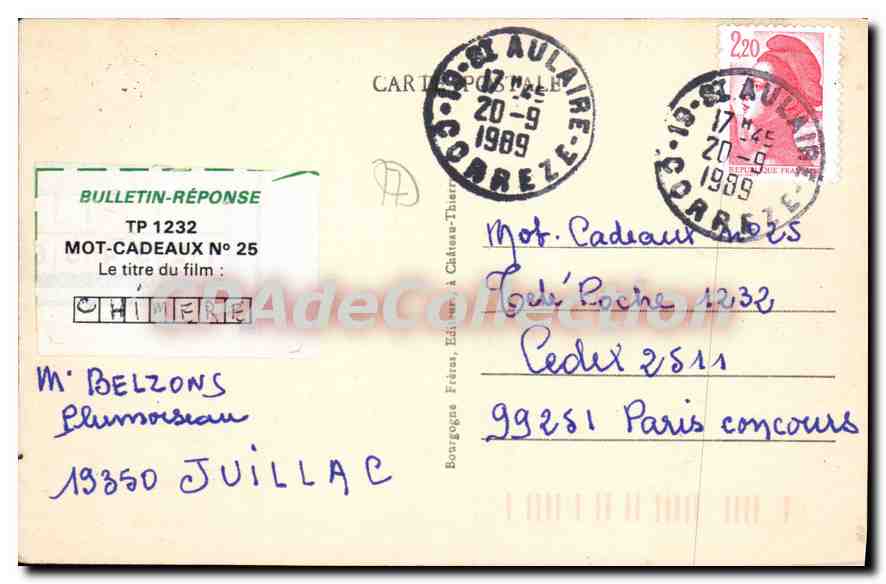 CARTE POSTALE
19 - ST AULAIRE - CORREZE
17H45
20-9
1989
19 - ST AULAIRE - CORREZE
17H45
20-9
1989
2,20
REPUBLIQUE FRANÇAISE
17
BULLETIN-RÉPONSE
TP 1232
MOT-CADEAUX Nº 25
Le titre du film :
CHIMERE
Mr BELZONS
Plumoiseau
19350 JUILLAC
Bourgogne Frères, Editeurs, à Château-Thierry
Mot. Cadeaux n° 25
Télé Poche 1232
Cedex 2511
99251 Paris concours
CPAdeCollection